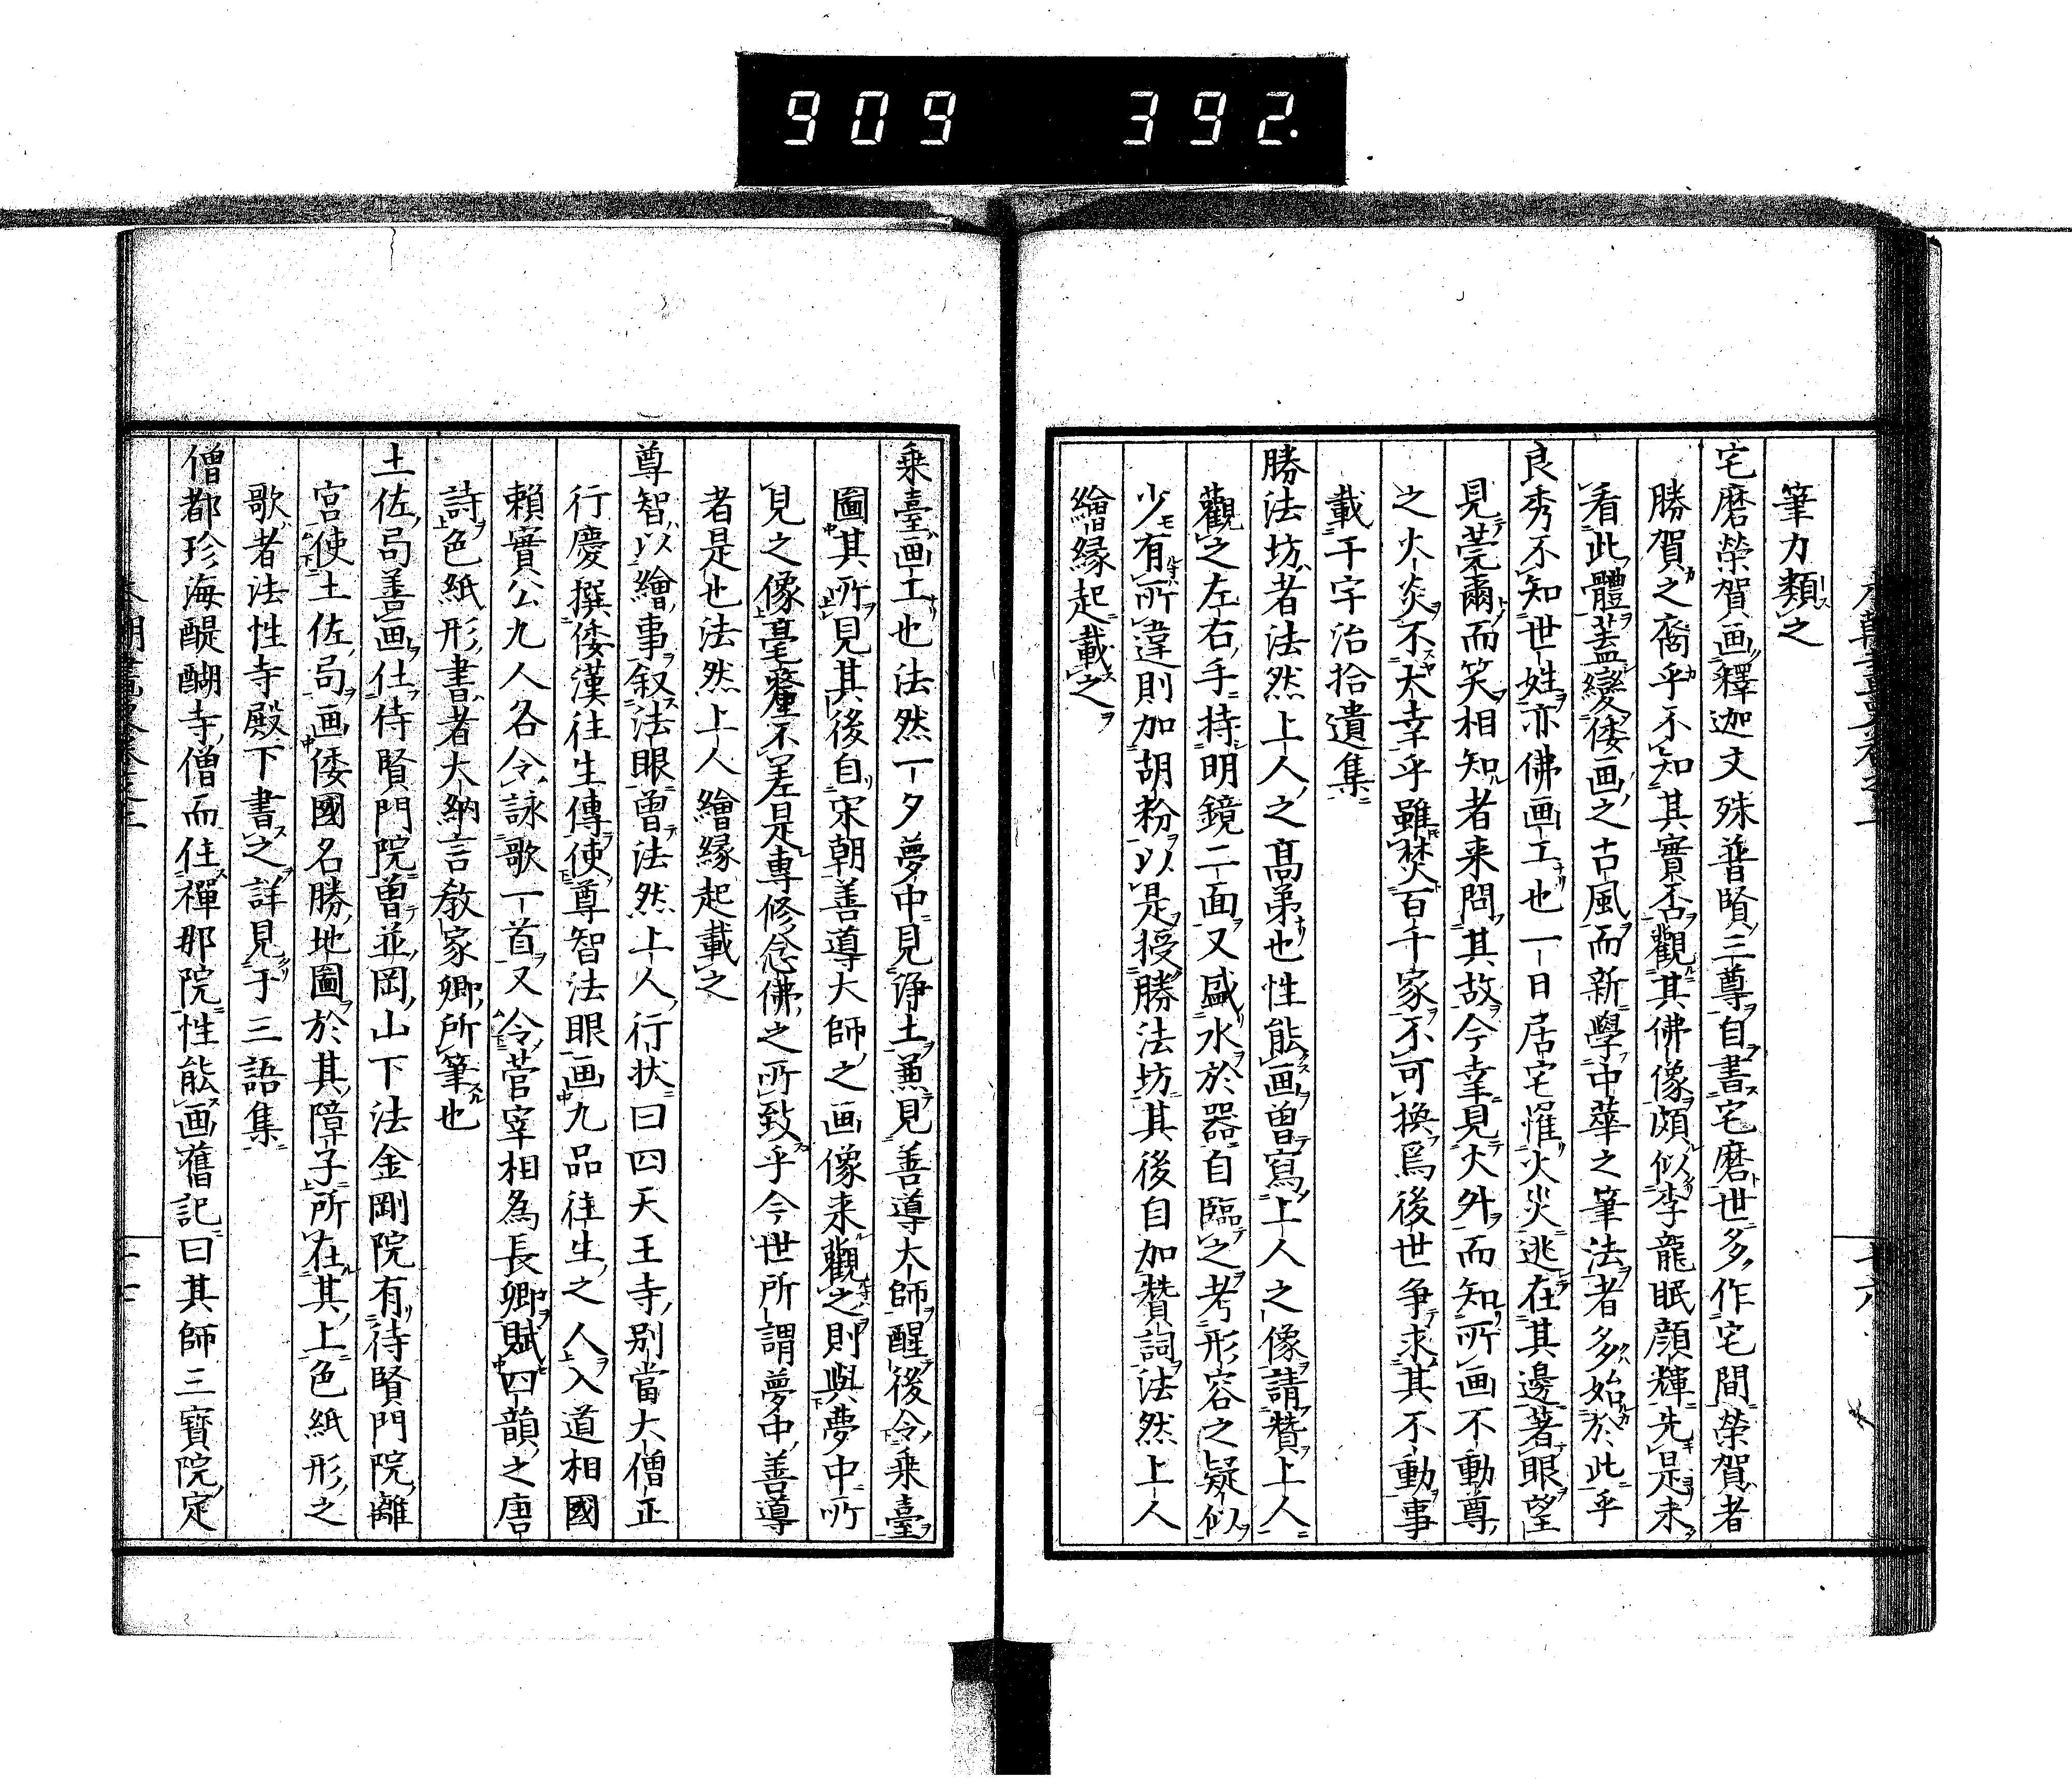 909 392.
筆力類之
宅磨榮賀画釋迦文殊普賢三尊自書宅磨世多作宅間榮賀者
勝賀之裔乎不知其實否觀其佛像頗似李龍眠顔輝先是未
看此體蓋變倭画之古風而新學中華之筆法者多始於此乎
良秀不知世姓亦佛画工也一日居宅罹火災逃在其邊著眼望
見莞爾而笑相知者来問其故今幸見火外而知所画不動尊
之火炎不太幸乎雖焚百千家不可換爲後世争求其不動事
載于宇治拾遺集
勝法坊者法然上人之髙弟也性能画曽寫上人之像請贊上人
觀之左右手持明鏡二面又盛水於器自臨之考形容之疑似
少有所違則加胡粉以是授勝法坊其後自加贊詞法然上人
繪縁起載之
乗臺画工也法然一夕夢中見浄土兼見善導大師醒後令乗臺
圖其所見其後自宋朝善導大師之画像来觀之則與夢中所
見之像毫釐不差是專修念佛之所致乎今世所謂夢中善導
者是也法然上人繪縁起載之
尊智以繪事叙法眼曽法然上人行状曰四天王寺別當大僧正
行慶撰倭漢往生傳使尊智法眼画九品往生之人入道相國
頼實公九人各令詠歌一首又令菅宰相為長卿賦四韻之唐
詩色紙形書者大納言教家卿所筆也
土佐局善画仕待賢門院曽並岡山下法金剛院有待賢門院離
宮使土佐局画倭國名勝地圖於其障子所在其上色紙形之
歌者法性寺殿下書之詳見于三語集
僧都珍海醍醐寺僧而住禪那院性能画舊記曰其師三寳院定